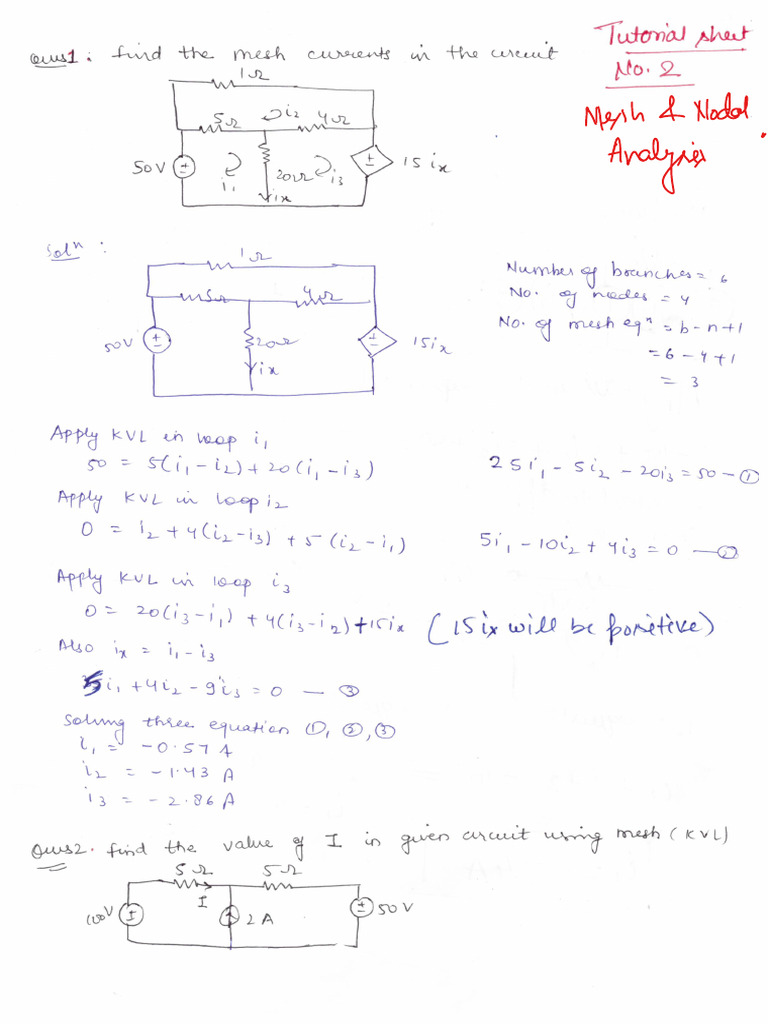 Tutorial sheet
No. 2
Mesh & Nodal
Analysis
Ques1: find the mesh currents in the circuit
1Ω
5Ω
i2
4Ω
50V
i1
20Ω
i3
ix
15 ix
Solⁿ:
1Ω
5Ω
4Ω
50V
20Ω
ix
15ix
Number of branches = 6
No. of nodes = 4
No. of mesh eqⁿ = b-n+1
= 6-4+1
= 3
Apply KVL in loop i1
50 = 5(i1-i2)+20(i1-i3)
25i1-5i2-20i3=50-①
Apply KVL in loop i2
0 = i2+4(i2-i3)+5(i2-i1)
5i1-10i2+4i3=0-②
Apply KVL in loop i3
0 = 20(i3-i1)+4(i3-i2)+15ix (15ix will be positive)
Also ix = i1-i3
5i1+4i2-9i3=0-③
Solving three equation ①,②,③
i1 = -0.57 A
i2 = -1.43 A
i3 = -2.86 A
Ques2. find the value of I in given circuit using mesh (KVL)
5Ω
5Ω
I
100V
2A
50V